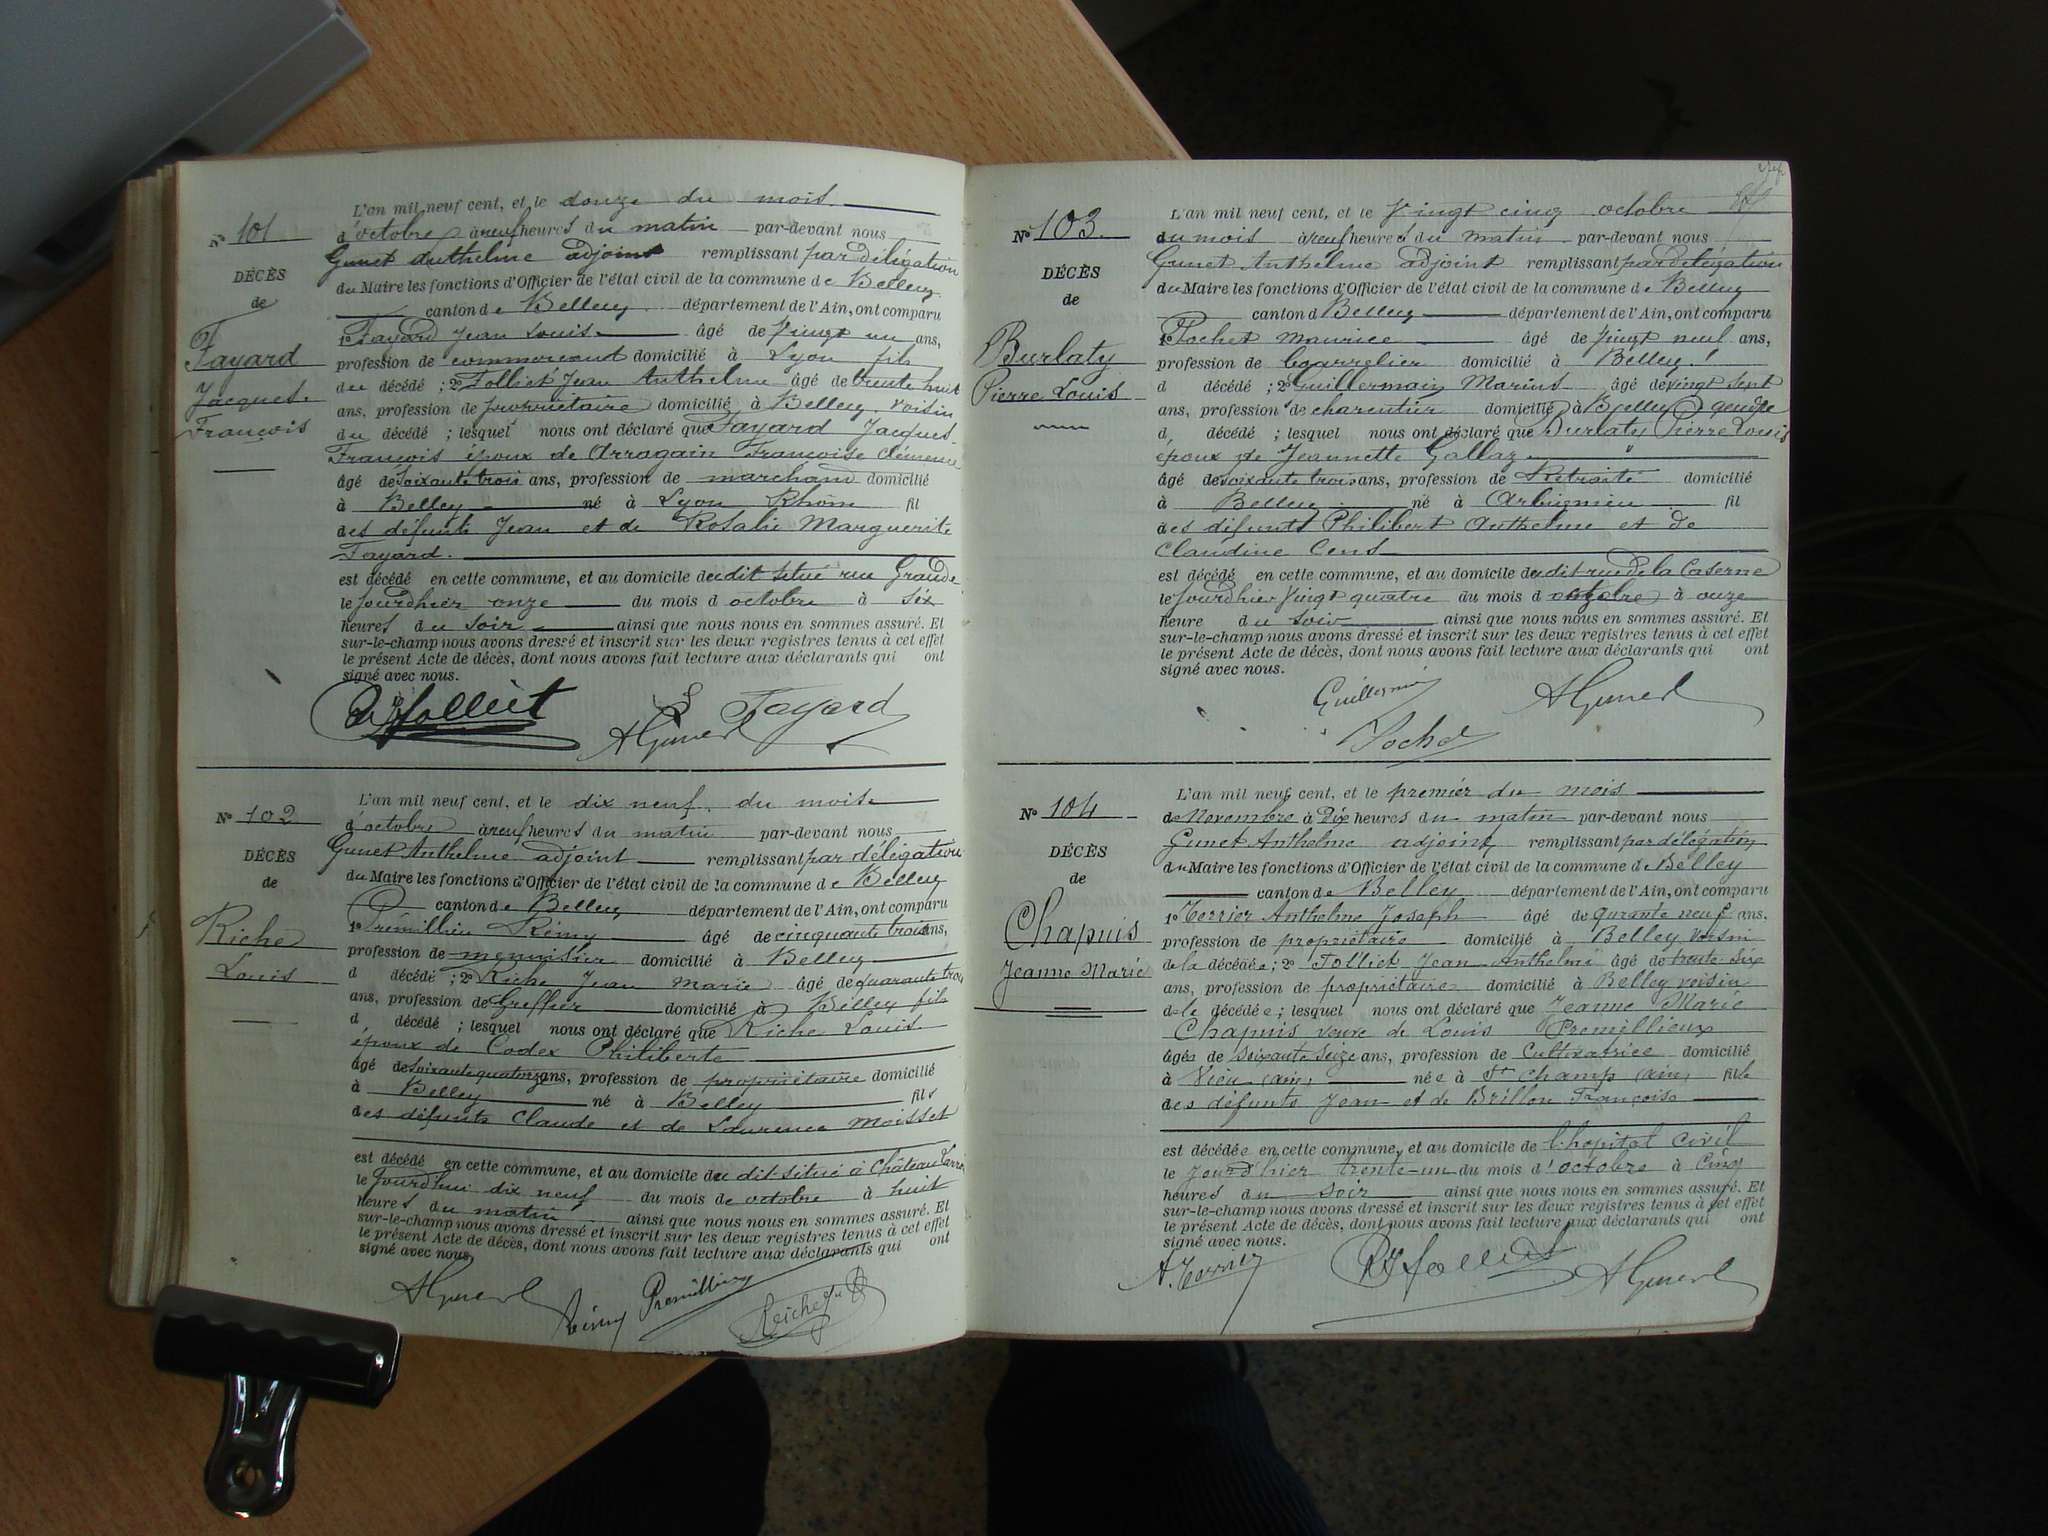 N° 101
DÉCÈS
de
Fayard
Jacques
François
L'an mil neuf cent, et le douze du mois
d'octobre à neuf heures du matin par-devant nous
Gunet Anthelme adjoint remplissant par délégation
du Maire les fonctions d'Officier de l'état civil de la commune de Belley
canton de Belley département de l'Ain, ont comparu
1° Fayard Jean Louis âgé de vingt un ans,
profession de commercant domicilié à Lyon fils
du décédé ; 2° Tolliet Jean Anthelme âgé de trente huit
ans, profession de propriétaire domicilié à Belley voisin
du décédé ; lesquels nous ont déclaré que Fayard Jacques
François époux de Arragain Françoise Clémence
âgé de soixante trois ans, profession de marchand domicilié
à Belley né à Lyon Rhône fil
des défunts Jean et de Rosalie Marguerite
Fayard.
est décédé en cette commune, et au domicile du dit situé rue Grande
le jourdhier onze du mois d octobre à six
heures du soir ainsi que nous nous en sommes assuré. Et
sur-le-champ nous avons dressé et inscrit sur les deux registres tenus à cet effet
le présent Acte de décès, dont nous avons fait lecture aux déclarants qui ont
signé avec nous.
Tolliet
AGunet Fayard
N° 102
DÉCÈS
de
Riche
Louis
L'an mil neuf cent, et le dix neuf du mois
d'octobre à neuf heures du matin par-devant nous
Gunet Anthelme adjoint remplissant par délégation
du Maire les fonctions d'Officier de l'état civil de la commune de Belley
canton de Belley département de l'Ain, ont comparu
1° Prémillieu Rémy âgé de cinquante trois ans,
profession de menuisier domicilié à Belley
d décédé ; 2° Riche Jean Marie âgé de quarante trois
ans, profession de Greffier domicilié à Belley fils
d décédé ; lesquel nous ont déclaré que Riche Louis
époux de Codex Philiberte
âgé de soixante quatorze ans, profession de propriétaire domicilié
à Belley né à Belley fils
des défunts Claude et de Laurence Moisset
est décédé en cette commune, et au domicile du dit situé à Château
le jourdhui dix neuf du mois de octobre à huit
heures du matin ainsi que nous nous en sommes assuré. Et
sur-le-champ nous avons dressé et inscrit sur les deux registres tenus à cet effet
le présent Acte de décès, dont nous avons fait lecture aux déclarants qui ont
signé avec nous
AGunet Rémy Premillieu Riche
N° 103
DÉCÈS
de
Burlaty
Pierre Louis
L'an mil neuf cent, et le vingt cinq octobre
du mois à neuf heures du matin par-devant nous
Gunet Anthelme adjoint remplissant par délégation
du Maire les fonctions d'Officier de l'état civil de la commune de Belley
canton de Belley département de l'Ain, ont comparu
1° Pochet Maurice âgé de vingt neuf ans,
profession de bourrelier domicilié à Belley
d décédé ; 2° Guillermain Marius âgé de vingt sept
ans, profession de charcutier domicilié à Belley gendre
d décédé ; lesquel nous ont déclaré que Burlaty Pierre Louis
époux de Jeannette Gallaz
âgé de soixante trois ans, profession de Retraité domicilié
à Belley né à Arbignieu fil
des défunts Philibert Anthelme et de
Claudine Cens
est décédé en cette commune, et au domicile du dit rue de la Caserne
le jourdhier vingt quatre du mois d octobre à onze
heure du soir ainsi que nous nous en sommes assuré. Et
sur-le-champ nous avons dressé et inscrit sur les deux registres tenus à cet effet
le présent Acte de décès, dont nous avons fait lecture aux déclarants qui ont
signé avec nous.
Guillermin AGunet
Pochet
N° 104
DÉCÈS
de
Chapuis
Jeanne Marie
L'an mil neuf cent, et le premier du mois
de Novembre à Dix heures du matin par-devant nous
Gunet Anthelme adjoint remplissant par délégation
du Maire les fonctions d'Officier de l'état civil de la commune de Belley
canton de Belley département de l'Ain, ont comparu
1° Terrier Anthelme Joseph âgé de qurante neuf ans,
profession de propriétaire domicilié à Belley voisin
de la décédée ; 2° Tolliet Jean Anthelme âgé de trente six
ans, profession de propriétaire domicilié à Belley voisin
de la décédée ; lesquel nous ont déclaré que Jeanne Marie
Chapuis veuve de Louis Premillieux
âgée de soixante seize ans, profession de Cultivatrice domicilié
à Vieu (ain) née à St Champ (ain) fille
des défunts Jean et de Brillon Françoise
est décédée en cette commune, et au domicile de l'hopital civil
le jourd'hier trente-un du mois d'octobre à cinq
heures du soir ainsi que nous nous en sommes assuré. Et
sur-le-champ nous avons dressé et inscrit sur les deux registres tenus à cet effet
le présent Acte de décès, dont nous avons fait lecture aux déclarants qui ont
signé avec nous.
A. Terrier Tolliet AGunet